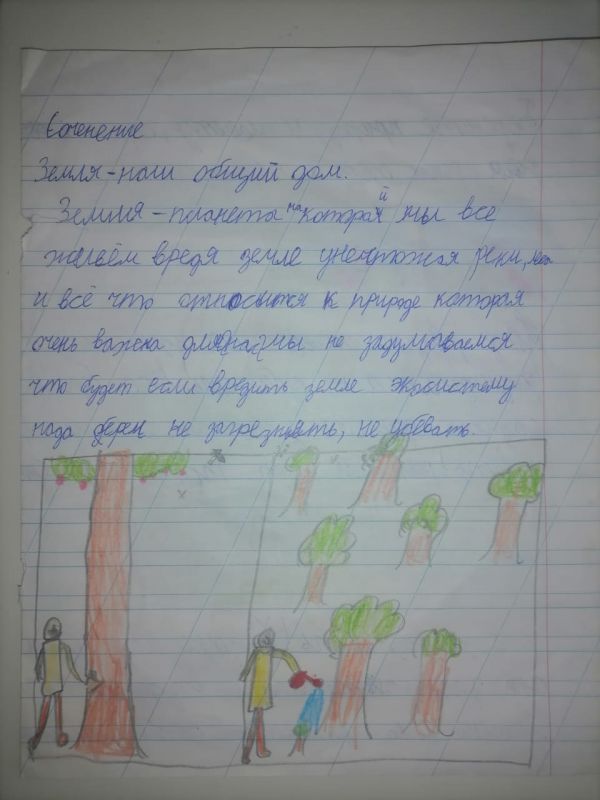 Соченение
Земля-наш общий дом.
Земля-планета на которай мы все
живём вредя земле унечтожая реки, леса
и всё что относится к природе которая
очень важна для нас мы не задумываемся
что будет если вредить земле экосистему
нада береч не загрезнять, не убевать.